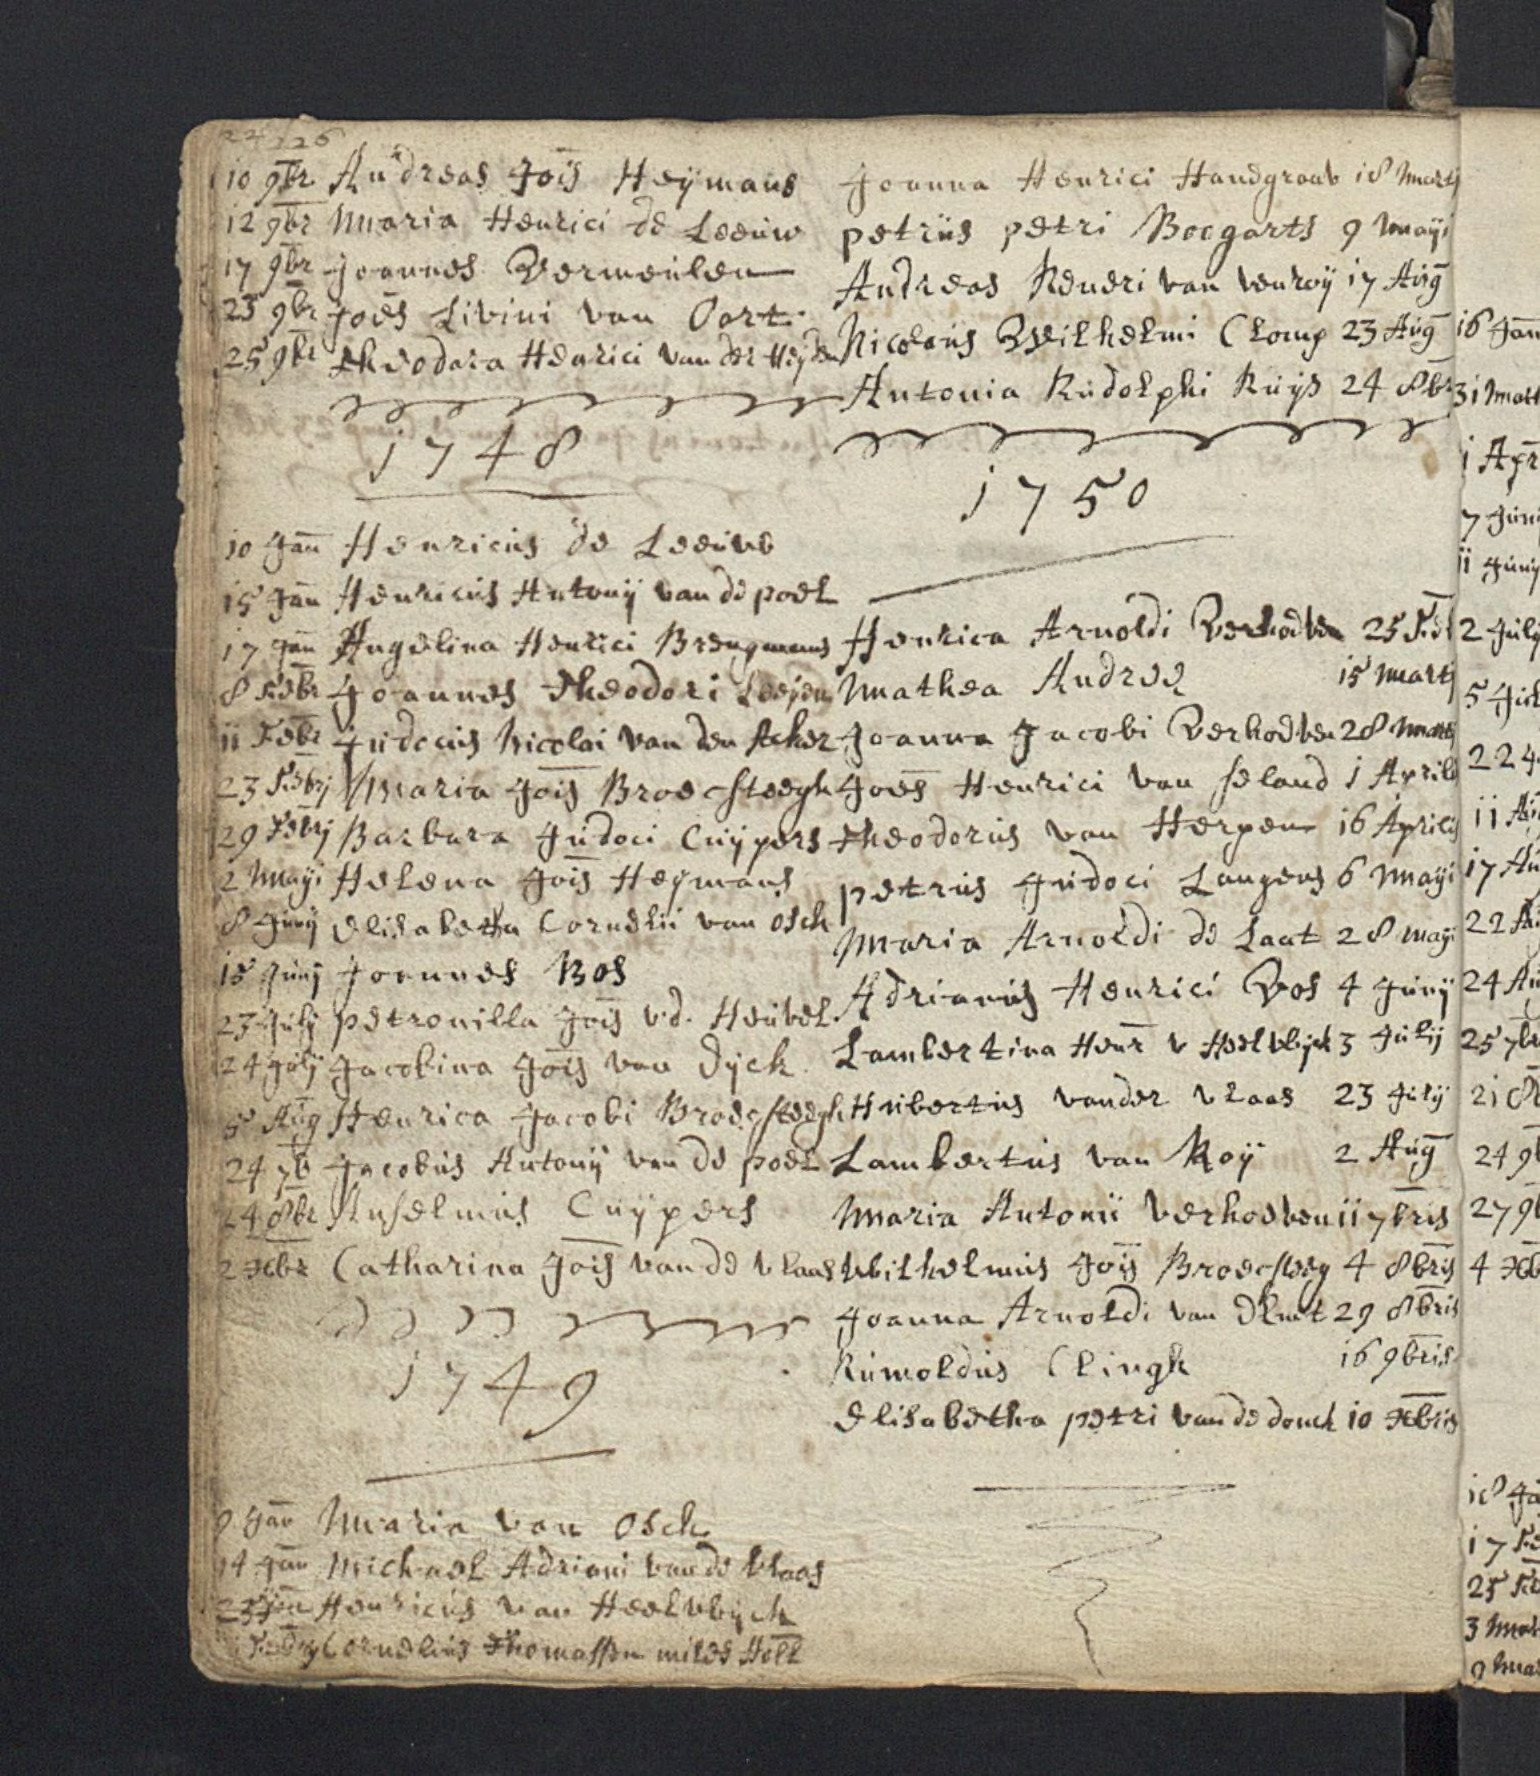 10 9br Andreas Jois Heÿmans
12 9br Maria Henrici de Leeuw
17 9br Joannes Vermeulen
23 9br Joes Livini van Oort
25 9br Theodora Henrici van der Heÿden
1748
10 Jan Henricus de Leeuw
15 Jan Henricus Antonÿ van de poel
17 Jan Angelina Henrici Brengmans
8 Febr Joannes Theodori
11 Febr Judocus Nicolai van den Acker
23 Febrj Maria Jois Broecsteegh
29 Febrj Barbara Judoci Cuÿpers
2 Mayi Helena Jois Heÿmans
8 Junÿ Elisabetha Cornelii van Osch
15 Junÿ Joannes Bos
23 Julÿ petronilla Jois v.d. Heuvel
24 Julÿ Jacobina Jois van Dÿck
5 Aug Henrica Jacobi Broecsteegh
24 7b Jacobus Antonÿ van de poel
24 8br Anselmus Cuÿpers
2 Xbr Catharina Jois van de vlaas
1749
9 Jan Maria van Osch
14 Jan Michael Adriani van de vlaas
23 Jan Henricus van Heelwÿck
Cornelius Thomassen miles Holl
Joanna Henrici Handgraav 18 Martÿ
petrus petri Bocgarts 9 Mayi
Andreas Reneri van Venroÿ 17 Aug
Nicolaus Wilhelmi Clomp 23 Aug
Antonia Rudolphi Ruÿs 24 8br
1750
Henrica Arnoldi Verhoeven 25 Feb
Mathea Andree 15 Martÿ
Joanna Jacobi Verhoeven 28 Martÿ
Joes Henrici van seland 1 Aprilis
Theodorus van Herpen 16 Aprilis
petrus Judoci Langens 6 Mayi
Maria Arnoldi de Laat 28 mayi
Adrianus Henrici Vos 4 Junÿ
Lambertina Henr v Heelwÿck 3 Julÿ
Hubertus vander vlaas 23 Julÿ
Lambertus van Roÿ 2 Aug
Maria Antonii Verhoeven 11 7bris
Wilhelmus Jois Broecsteeg 4 8bris
Joanna Arnoldi van 29 8bris
Rumoldus Clingh 16 9bris
Elisabetha petri van de donck 10 Xbris
16 Jan
31 Mart
1 Apr
7 Juni
11 Juny
2 July
5 Jul
22
11 Au
17 Au
22 Au
24 Au
25 7br
21 8b
24 9b
27 9b
4 Xb
18 Ja
17 Fe
25 Fe
3 Mar
9 Mar